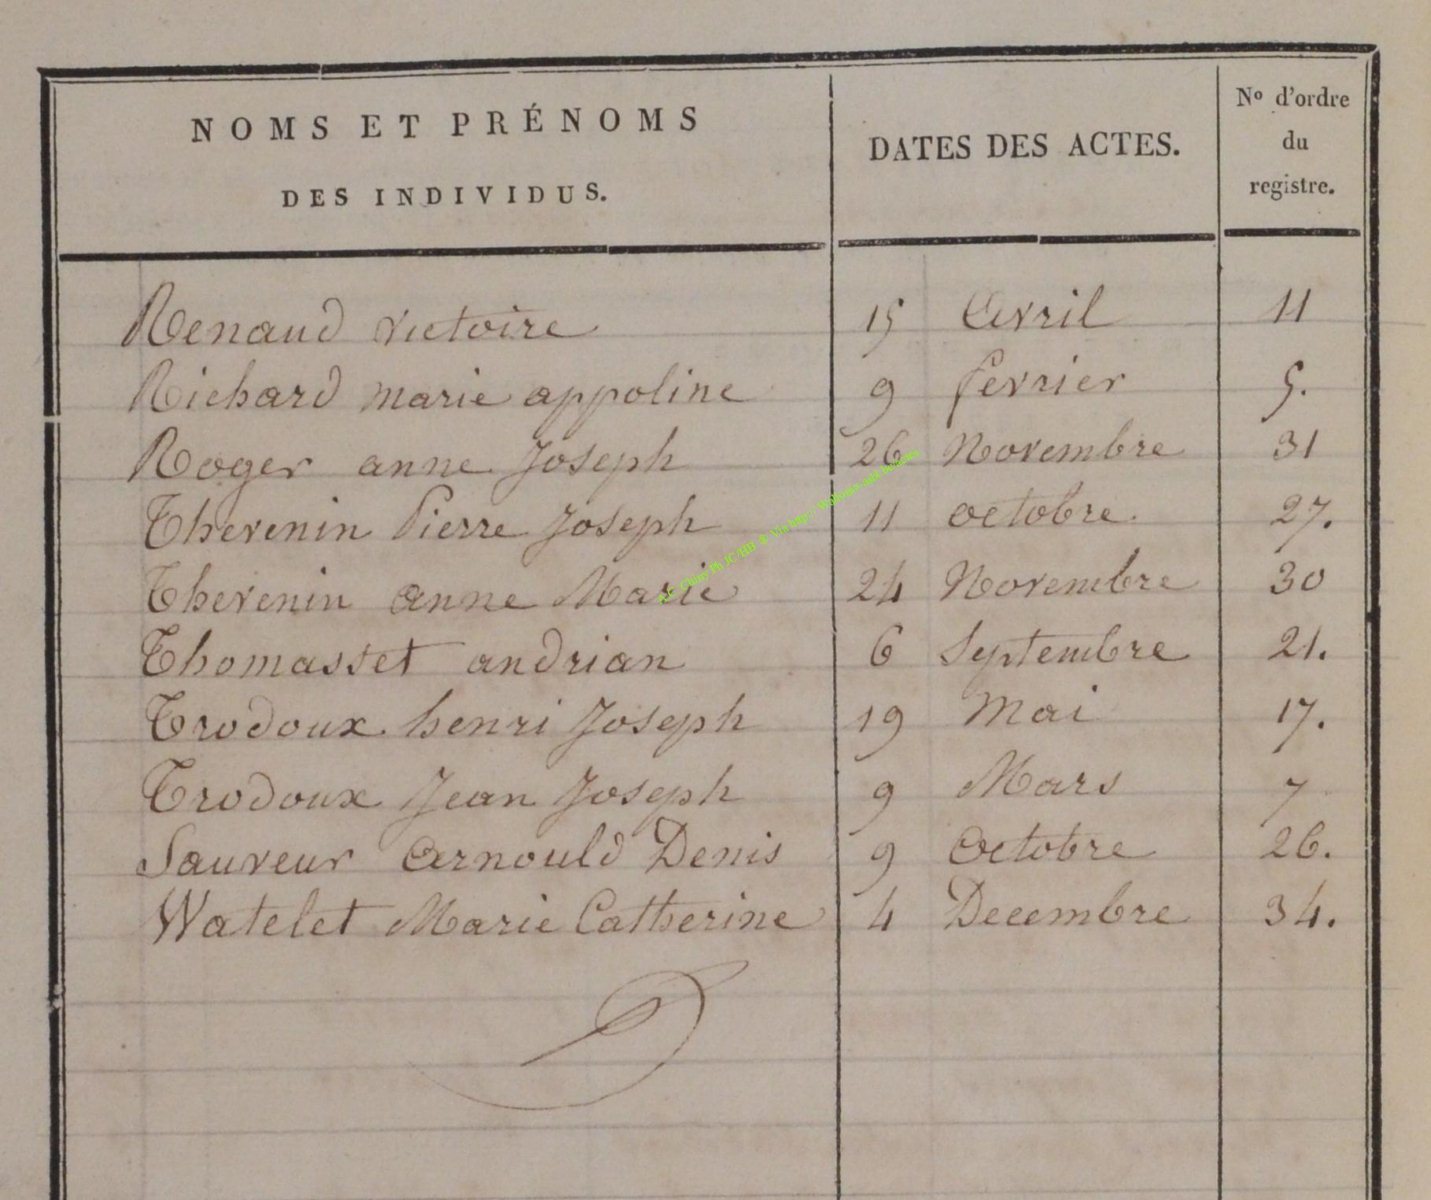 NOMS ET PRÉNOMS
DES INDIVIDUS.
DATES DES ACTES.
No d'ordre
du
registre.
Renaud victoire 15 Avril 11
Richard marie appoline 9 fevrier 5.
Roger anne Joseph 26 Novembre 31
Thevenin Pierre Joseph 11 octobre. 27.
Thevenin anne Marie 24 Novembre 30
Thomasset andrian 6 Septembre 21.
Trodoux henri Joseph 19 Mai 17.
Trodoux Jean Joseph 9 Mars 7
Sauveur Arnould Denis 9 Octobre 26.
Watelet Marie Catherine 4 Decembre 34.